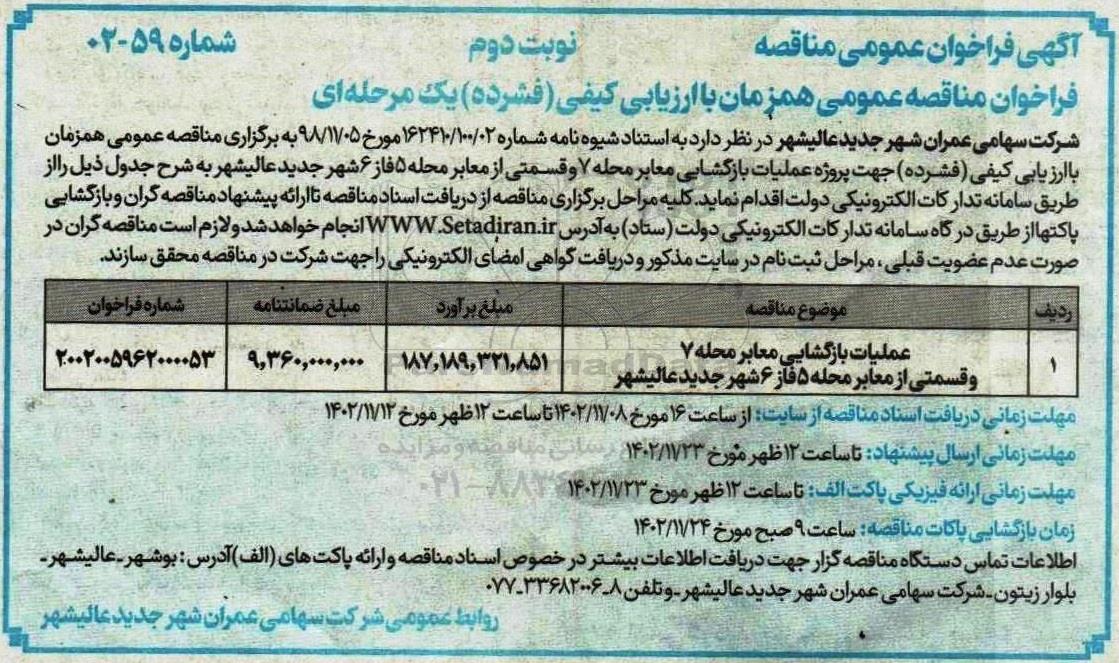 آگهی فراخوان عمومی مناقصه نوبت دوم شماره ۵۹-۰۲
فراخوان مناقصه عمومی همزمان با ارزیابی کیفی (فشرده) یک مرحله‌ای
شرکت سهامی عمران شهر جدید عالیشهر در نظر دارد به استناد شیوه نامه شماره ۱۶۲۴۱۰/۱۰۰/۰۲ مورخ ۹۸/۱۱/۰۵ به برگزاری مناقصه عمومی همزمان
با ارزیابی کیفی (فشرده) جهت پروژه عملیات بازگشایی معابر محله ۷ و قسمتی از معابر محله ۵ فاز ۶ شهر جدید عالیشهر به شرح جدول ذیل را از
طریق سامانه تدارکات الکترونیکی دولت اقدام نماید. کلیه مراحل برگزاری مناقصه از دریافت اسناد مناقصه تا ارائه پیشنهاد مناقصه گران و بازگشایی
پاکتها از طریق درگاه سامانه تدارکات الکترونیکی دولت (ستاد) به آدرس WWW.Setadiran.ir انجام خواهد شد و لازم است مناقصه گران در
صورت عدم عضویت قبلی، مراحل ثبت نام در سایت مذکور و دریافت گواهی امضای الکترونیکی را جهت شرکت در مناقصه محقق سازند.
ردیف موضوع مناقصه مبلغ برآورد مبلغ ضمانتنامه شماره فراخوان
۱ عملیات بازگشایی معابر محله ۷
و قسمتی از معابر محله ۵ فاز ۶ شهر جدید عالیشهر ۱۸۷,۱۸۹,۳۲۱,۸۵۱ ۹,۳۶۰,۰۰۰,۰۰۰ ۲۰۰۲۰۰۵۹۶۲۰۰۰۰۵۳
مهلت زمانی دریافت اسناد مناقصه از سایت: از ساعت ۱۶ مورخ ۱۴۰۲/۱۱/۰۸ تا ساعت ۱۲ ظهر مورخ ۱۴۰۲/۱۱/۱۲
مهلت زمانی ارسال پیشنهاد: تا ساعت ۱۲ ظهر مورخ ۱۴۰۲/۱۱/۲۳
مهلت زمانی ارائه فیزیکی پاکت الف: تا ساعت ۱۲ ظهر مورخ ۱۴۰۲/۱۱/۲۳
زمان بازگشایی پاکات مناقصه: ساعت ۹ صبح مورخ ۱۴۰۲/۱۱/۲۴
اطلاعات تماس دستگاه مناقصه گزار جهت دریافت اطلاعات بیشتر در خصوص اسناد مناقصه و ارائه پاکت های (الف) آدرس: بوشهر ـ عالیشهر ـ
بلوار زیتون ـ شرکت سهامی عمران شهر جدید عالیشهر ـ و تلفن ۸ـ۳۳۶۸۲۰۰۶ـ۰۷۷
روابط عمومی شرکت سهامی عمران شهر جدید عالیشهر